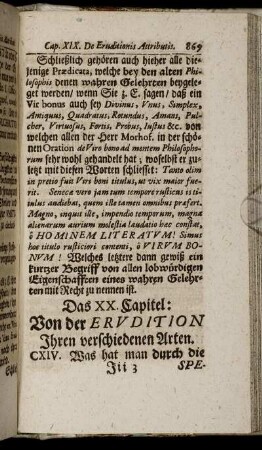 Cap. XIX. De Eruditionis Attributis. 869
Schließlich gehören auch hieher alle die-
jenige Prædicata, welche bey den alten Phi-
losophis denen wahren Gelehrten beygele-
get werden/ wenn Sie z. E. sagen/ daß ein
Vir bonus auch sey Divinus, Vnus, Simplex,
Antiquus, Quadratus, Rotundus, Amans, Pul-
cher, Virtuosus, Fortis, Probus, Iustus &c. von
welchen allen der Herr Morhof. in der schö-
nen Oration de Viro bono ad mentem Philosopho-
rum sehr wohl gehandelt hat; woselbst er zu-
letzt mit diesen Worten schliesset: Tanto olim
in pretio fuit Viri boni titulus, ut vix maior fue-
rit. Senecæ vero jam tum tempore rusticus is ti-
tulus audiebat, quem ille tamen omnibus præfert.
Magno, inquit ille, impendio temporum, magna
alienarum aurium molestia laudatio hæc constat,
ô HOMINEM LITERATUM! Simus
hoc titulo rusticiori contenti, ô VIRUM BO-
NUM! Welches letztere dann gewiß ein
kurtzer Begriff von allen lobwürdigen
Eigenschafften eines wahren Gelehr-
ten mit Recht zu nennen ist.
Das XX. Capitel:
Von der ERVDITION
Ihren verschiedenen Arten.
CXIV. Was hat man durch die
Iii 3 SPE-